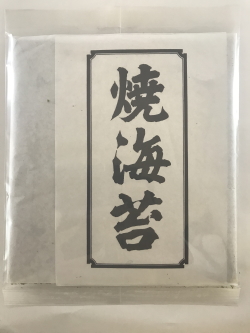 焼海苔